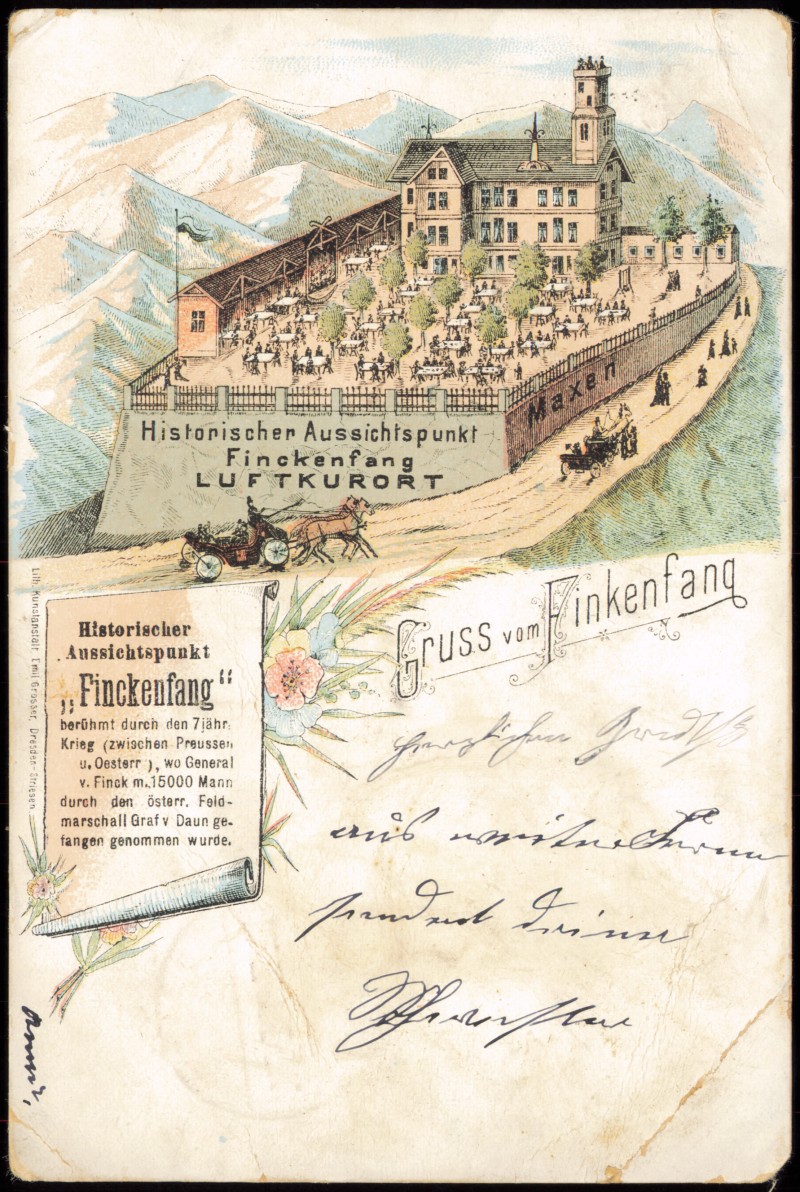 Historischer Aussichtspunkt
Finckenfang
LUFTKURORT
Maxen
Gruss vom Finkenfang
Historischer
Aussichtspunkt
„Finckenfang“
berühmt durch den 7jähr.
Krieg (zwischen Preussen
u. Oesterr.), wo General
v. Finck m. 15000 Mann
durch den österr. Feld-
marschall Graf v Daun ge-
fangen genommen wurde.
Lith. Kunstanstalt Emil Grosser, Dresden-Striesen
herzlichen
aus weiter Ferne
sendet deine
Schwester
Anna,